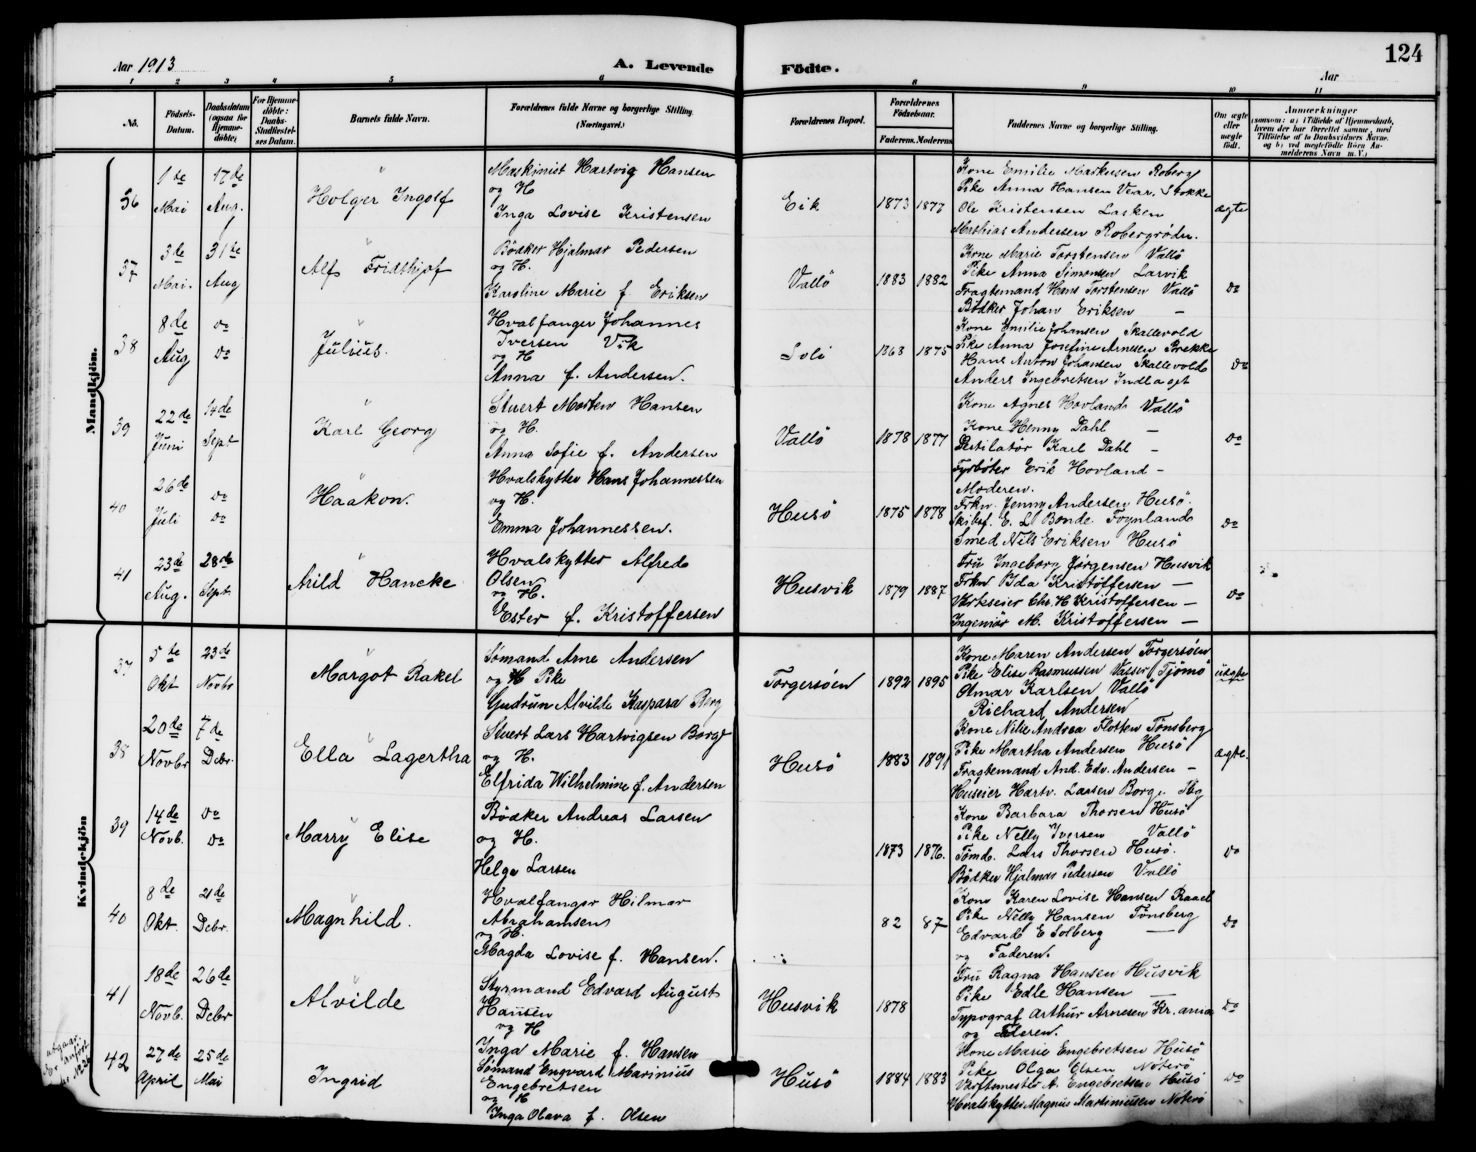 124
Aar 1913
A. Levende Födte.
Aar
1 2 3 4 5 6 8 9 10 11
No.
Födsels-Datum.
Daabsdatum (ogsaa for Hjemme-döbte;
For Hjemme-döbte: Daabs-Stadfæstel-ses Datum.
Barnets fulde Navn.
Forældrenes fulde Navne og borgerlige Stilling
(Næringsvei.)
Forældrenes Bopæl.
Forældrenes Födselsaar.
Faderens. Moderens
Faddernes Navne og borgerlige Stilling.
Om ægte eller uægte födt.
Anmærkninger
(saasom: a) i Tilfælde af Hjemmedaab,
hvem der har forrettet samme, med
Tilföielse af to Daabsvidners Navne.
og b) ved uægtefödte Börn An-
melderens Navn m. V.)
Mandkjön.
36
1 de Mai
17 de Aug.
Holger Ingolf
Maskinist Hartvig Hansen
og H
Inga Lovise Kristensen
Eik
1873 1877
Kone Emilie Markussen Roberg
Pike Anna Hansen Vear, Stokke
Ole Kristensen Lasken
Mathias Andersen Robergrödn.
ægte
37
3 de Mai.
31 te Aug
Alf Fridthjof
Bödker Hjalmar Pedersen
og H.
Karoline Marie f. Eriksen
Vallö
1883 1882
Kone Marie Torstensen Vallö
Pike Anna Simonsen Larvik
Fragtemand Hans Torstensen Vallö
Bödker Johan Eriksen —
do
38
8 de Aug
do do
Julius.
Hvalfanger Johannes
Iversen Vik
og H
Anna f. Andersen.
Solö
1868 1875
Kone Emilie Johansen Skallevold
Pike Anna Josefine Arnesen Brekke
Hans Anton Johansen Skallevold
Anders Ingebretsen Indlaget
do
39
22 de Juni
14 de Sept
Karl Georg
Stuert Morten Hansen
og H.
Anna Sofie f. Andersen
Vallö
1878 1877
Kone Agnes Hovland Vallö
Kone Henny Dahl —
Destilatör Karl Dahl —
Fyrböter Erik Hovland —
do
40
26 de Juli
do do
Haakon.
Hvalskytter Hans Johannessen
og H.
Emma Johannessen.
Husö
1875 1878
Moderen.
Frkn. Jenny Andersen Husö.
Skibsf. E. L. Bonde Föynland
Smed Nils Eriksen Husö
do
41
23 de Aug.
28 de Sept
Arild Hancke
Hvalskytter Alfred
Olsen
og H.
Ester f. Kristoffersen
Husvik
1879 1887
Fru Ingeborg Jörgensen Husvik
Frkn Ida Kristoffersen —
Værkseier Chr. H Kristoffersen —
Ingeniör M. Kristoffersen —
do
Kvindekjön
37
5 te Okt
23 de Novbr
Margot Rakel
Sömand Arne Andersen
og H Pike
Gudrun Alvilde Kaspara Berg
Torgersöen
1892 1895
Kone Maren Andersen Torgersöen
Pike Elise Rasmussen Tjömö
Olmar Karlsen Vallö
Richard Andersen
uægte
38
20 de Novbr
7 de Debr.
Ella Lagertha
Stuert Lars Hartvigsen Borge
og H.
Elfrida Wilhelmine f. Andersen
Husö
1883 1891
Kone Nille Andrea Flotten Tönsberg
Pike Martha Andersen Husö
Fragtemand And. Edv. Andersen —
Huseier Hartv. Larsen Borge Tbg
ægte.
39
14 de Novb.
do do
Marry Elise
Bödker Andreas Larsen
og H.
Helga Larsen
1873 1876.
Kone Barbara Thorsen Husö
Pike Nelly Iversen Vallö
Tömd. Lars Thorsen Husö.
Bödker Hjalmar Pedersen Vallö
do
40
8 de Okt.
21 de Debr.
Magnhild.
Hvalfanger Hilmar
Abrahamsen
og H.
Magda Lovise f. Hansen.
82 87
Kone Karen Lovise Hansen Raael
Pike Nelly Hansen Tönsberg
Edvard E Solberg —
og Faderen.
do
41
18 de Novb.
26 de Debr
Alvilde
Styrmand Edvard August
Hansen
og H
Inga Marie f. Hansen
Husvik
1878
Fru Ragna Hansen Husvik
Pike Edle Hansen —
Typograf Arthur Arnesen Kr.ania
og Faderen.
do
42
27 de April
25 de Mai
Ingrid
Sömand Engvard Marinius
Engebretsen
og H
Inga Olava f. Olsen
Husö
1884 1883
Kone Marie Engebretsen Husö
Pike Olga Olsen Nöterö
Værftsmester A. Engebretsen Husö
Hvalskytter Magnus Martiniussen Nöterö
do